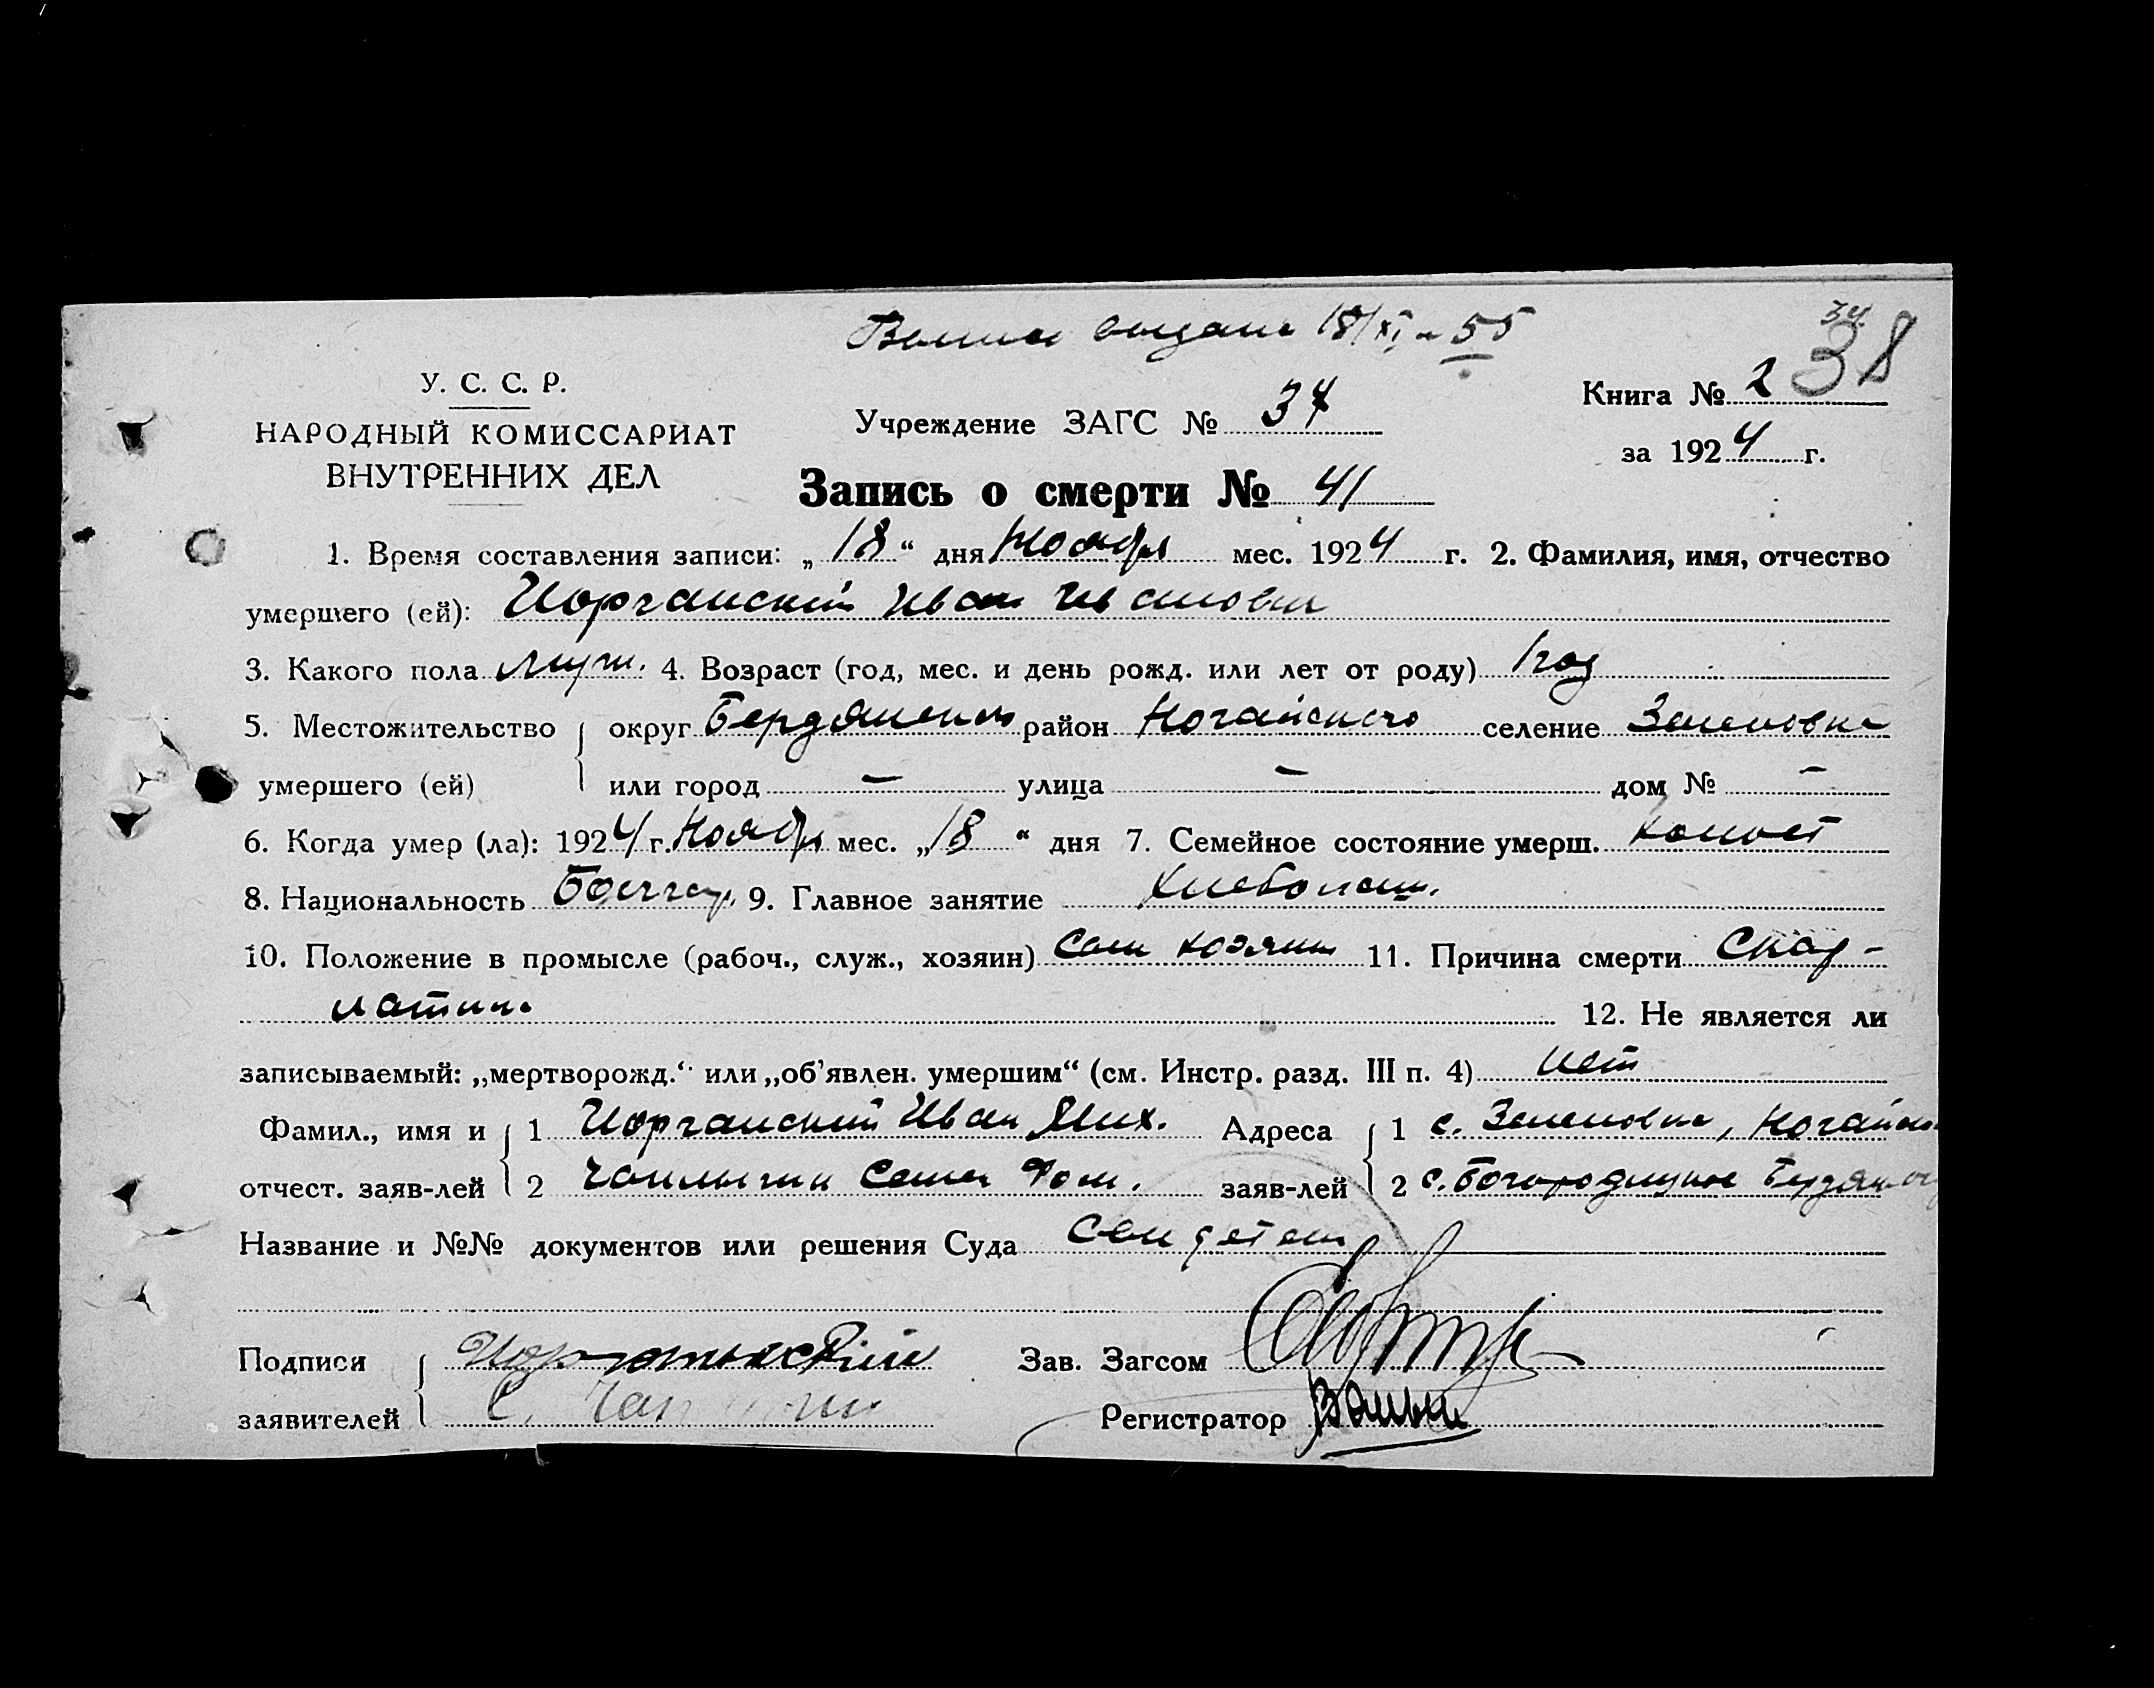 выдана 18/XI - 55
34 38
У. С. С. Р.
Книга № 2
Учреждение ЗАГС № 37
НАРОДНЫЙ КОМИССАРИАТ
за 1924 г.
ВНУТРЕННИХ ДЕЛ
Запись о смерти № 41
1. Время составления записи: „18“ дня Ноября мес. 1924 г. 2. Фамилия, имя, отчество
умершего (ей): Иорганский Иван Иванович
3. Какого пола муж. 4. Возраст (год, мес. и день рожд. или лет от роду) 1 год
5. Местожительство округ Бердянский район Ногайского селение Зеленовка
умершего (ей) или город — улица — дом № —
6. Когда умер (ла): 1924 г. Ноябрь мес. „18“ дня 7. Семейное состояние умерш. холост
8. Национальность Болгар. 9. Главное занятие хлебопаш.
10. Положение в промысле (рабоч., служ., хозяин) Сам хозяин 11. Причина смерти Скар-
латина 12. Не является ли
записываемый: „мертворожд.“ или „об'явлен. умершим“ (см. Инстр. разд. III п. 4) нет
Фамил., имя и 1 Иорганский Иван Мих. Адреса 1 с. Зеленовка, Ногайск
отчест. заяв-лей 2 Чаплыгин Фом. заяв-лей 2 с. Богородицкое Бердянск
Название и №№ документов или решения Суда
Подписи Иорганский Зав. Загсом
заявителей С. Регистратор